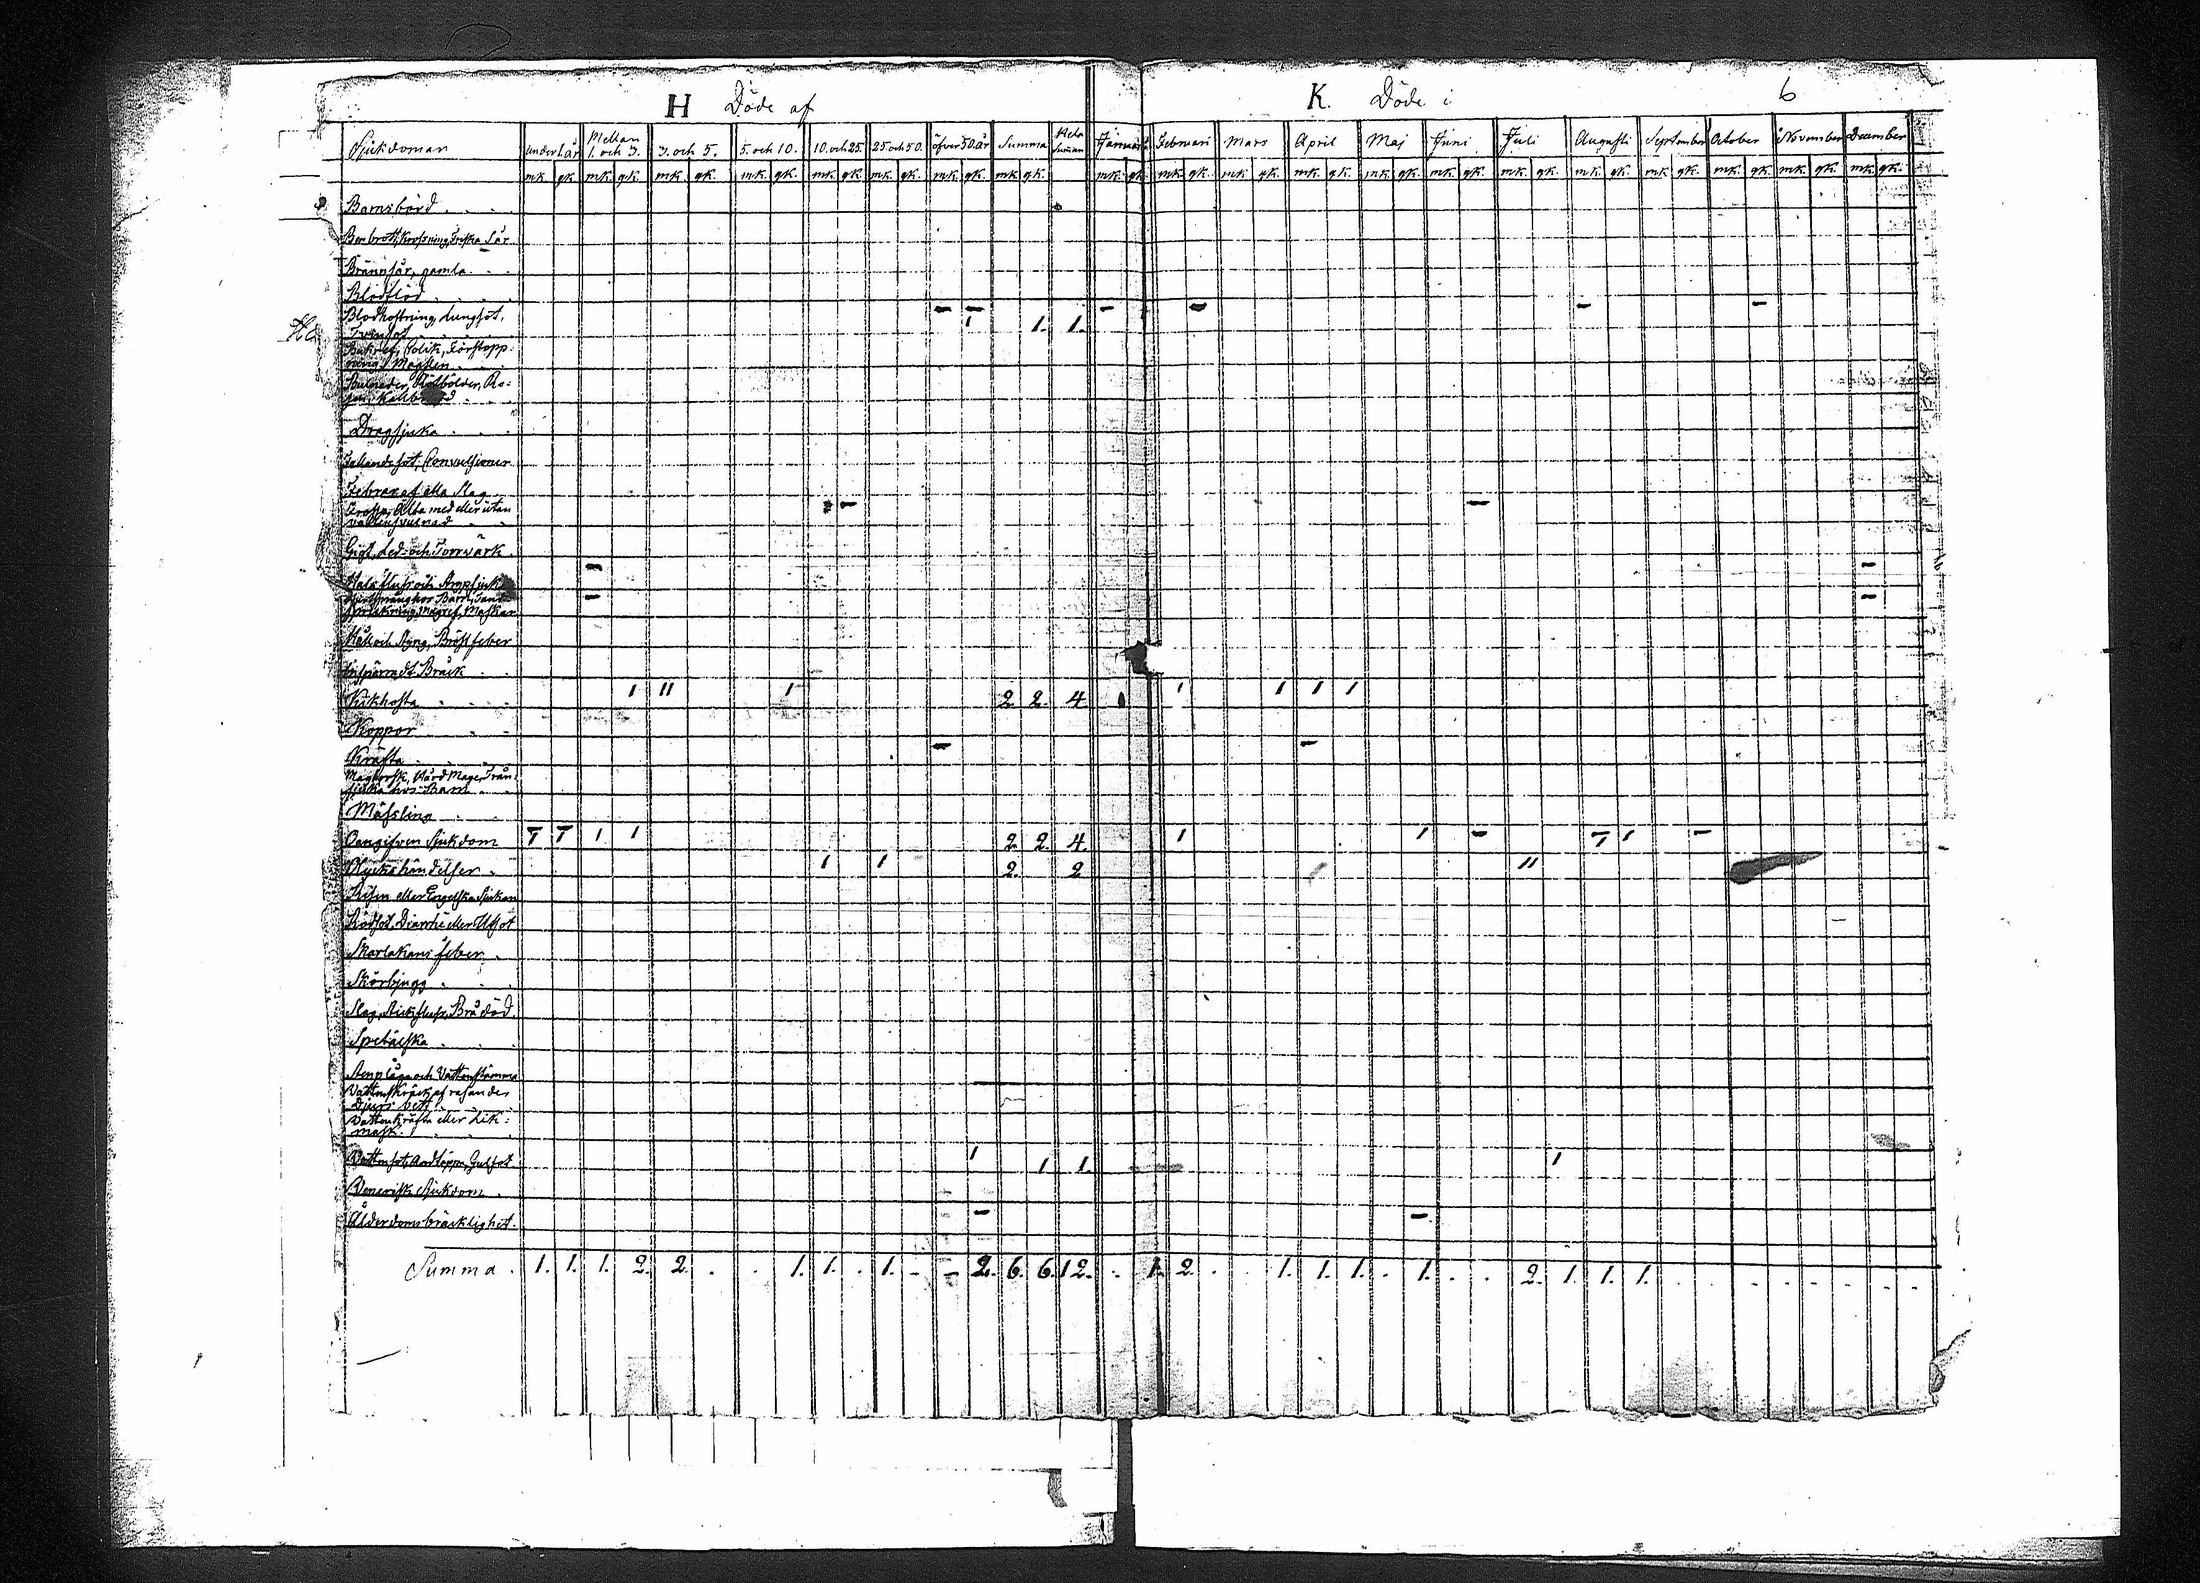 H Döde af
K. Döde i
6
Sjukdomar under 1 år Mellan 1. och 3. 3. och 5. 5. och 10. 10. och 25. 25 och 50. öfver 50. år Summa Hela Summan Januari Februari Mars April Maj Juni Juli Augusti September October November December
mk. qk. mk. qk. mk. qk. mk. qk. mk. qk. mk. qk. mk. qk. mk. qk. mk. qk. mk. qk. mk. qk. mk. qk. mk. qk. mk. qk. mk. qk. mk. qk. mk. qk. mk. qk. mk. qk. mk. qk.
Barnsbörd
Benbrott, Krossning, Friska Sår
Brännsår, gamla
Blodflod
Blodhostning, Lungsot,
Tvinsot 1 1. 1.
Bukref, Colik, Förstopp-
ning, Magsten
Bulnader, Rötbölder, Ro-
sen, Kallbrand
Dragsjuka
Fallandesot, Convulsioner
Febrar af alla Slag
Frossa, Älta med eller utan
vattensvulnad
Gigt, Led- och Torrvärk
Halsfluss och Strypsjuka
Hjertsprång hos Barn, Tand-
sprickning, Magref, Maskar
Håll och Styng, Bröstfeber
Inspärradt Bråck
Kikhosta 1 11 1 2 2. 4 1 1 1 1
Koppor
Kräfta
Magtorsk, Hård Mage, Trån-
sjuka hos Barn
Mässling
Oangifven Sjukdom 1 1 1 1 2 2 4 1 1 1 1
Olyckshändelser 1 1 2. 2 11
Risen eller Engelska Sjukan
Rödsot, Diarrhé eller Utsot
Skarlakans feber
Skörbjugg
Slag, Stickfluss, Bråddöd
Spetälska
Stenplåga och Vattenstämma
Vattuskräck af rasandes
Djurs bett
Vattenkräfta eller Lik-
mask
Vattensot, Andtäppa, Gulsot 1 1 1. 1
Venerisk Sjukdom
Ålderdomsbräcklighet
Summa. 1. 1. 1. 2. 2. 1. 1. 1. 2. 6. 6. 12. 1. 2. 1. 1. 1. 1. 2. 1. 1. 1.